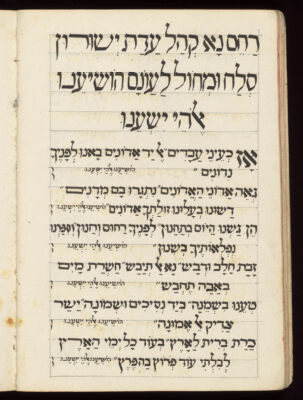 רחם נא קהל עדת ישורון
סלח ומחול לעונם הושיענו
אלהי ישענו
אז כעיני עבדים אל יד אדונים באנו לפניך
נדונים הושיענו אלהי ישענו
גאה אדוני האדונים נתגרו בם מדנים
דשונו בעלונו זולתך אדונים הושיענו אלהי ישענו
הן גשנו היום בתחנון לפניך רחום וחנון וספרנו
נפלאותיך בשנון הושיענו אלהי ישענו
זבת חלב ודבש נא אל תיבש חשרת מים
באבה תחבש הושיענו אלהי ישענו
טענו בשמנה ביד נסיכים ושמונה ישר
צדיק אל אמונה הושיענו אלהי ישענו
כרת ברית לארץ בעוד כל ימי הארץ
לבלתי עוד פרוץ בה פרץ הושיענו אלהי ישענו